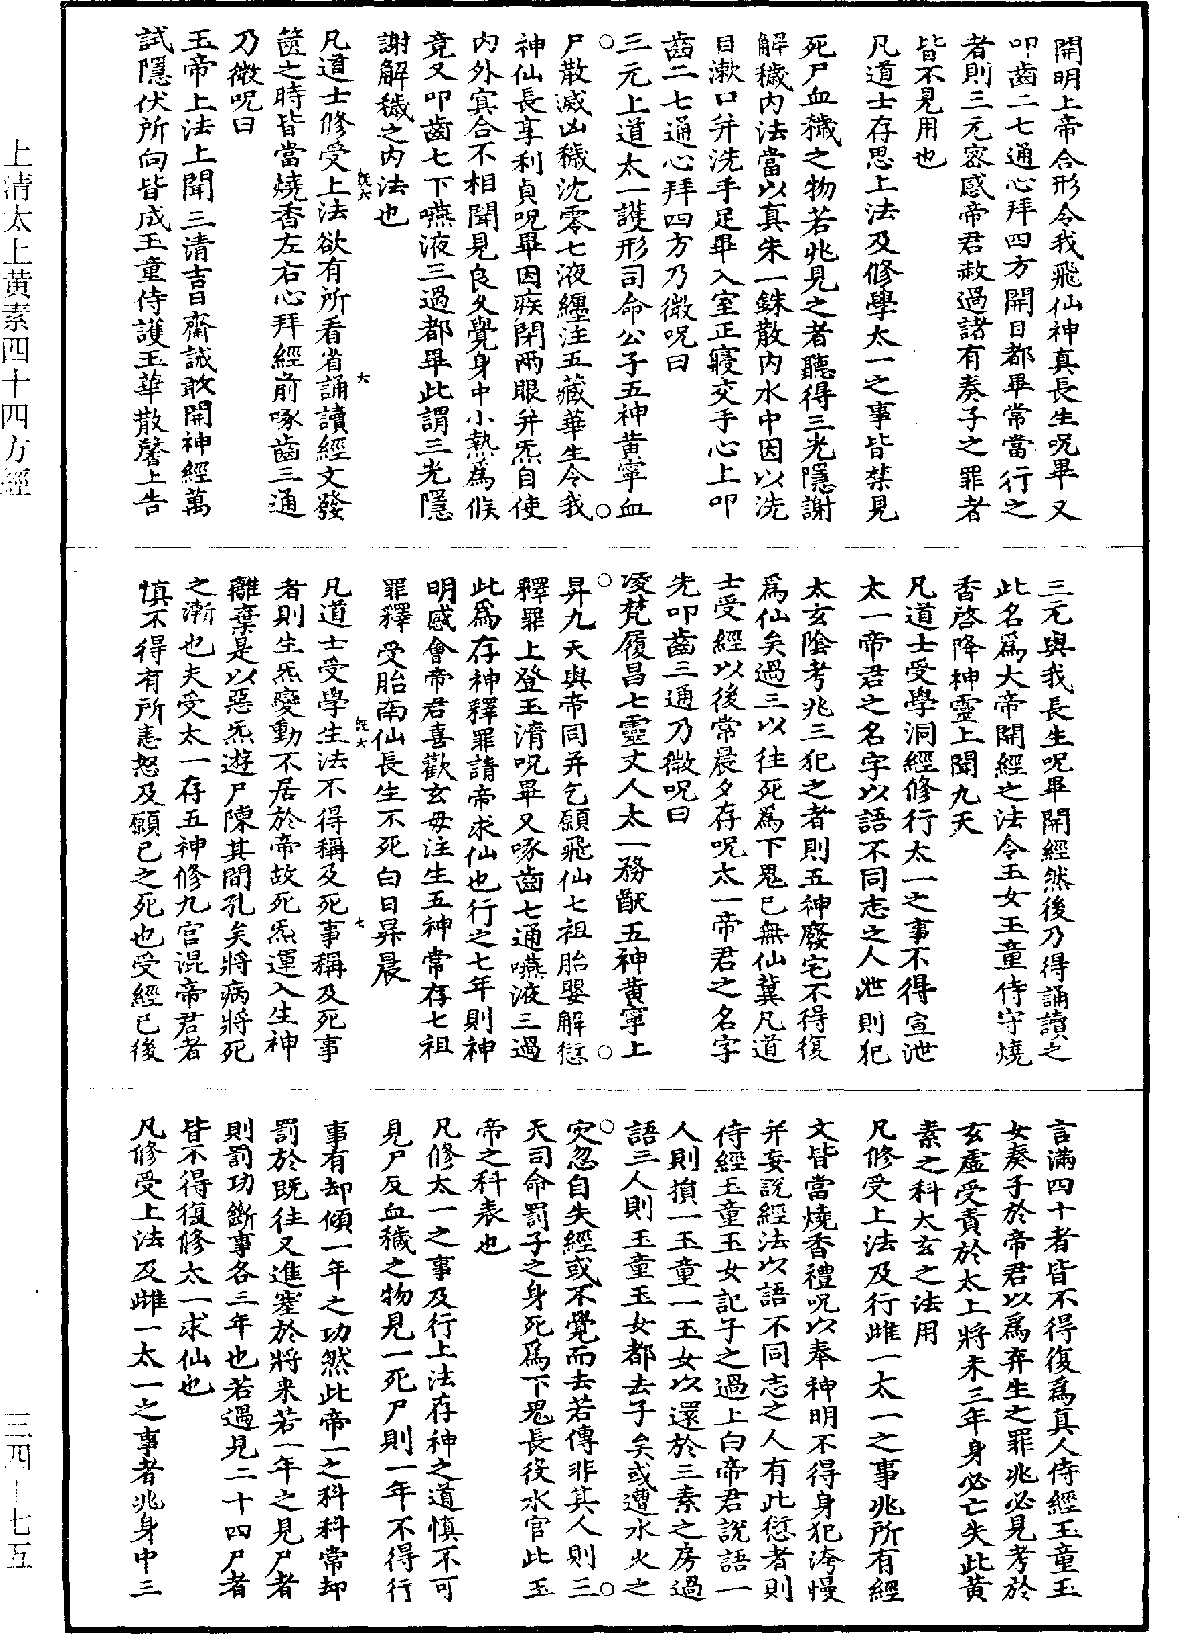 開明上帝合形令我飛仙神真長生呪畢又
叩齒二七通心拜四方開目都畢常當行之
者則三元密感帝君赦過諸有奏子之罪者
皆不見用也
凡道士存思上法及修學太一之事皆禁見
死尸血穢之物若兆見之者聽得三光隱謝
解穢内法當以真朱一銖散内水中因以洗
目漱口并洗手足畢入室正寢交手心上叩
齒二七通心拜四方乃微呪曰
三元上道太一護形司命公子五神黄寧血
尸散滅凶穢沈零七液纏注五藏華生令我
神仙長享利貞呪畢因疾閉兩眼并炁自使
内外㝠合不相聞見良久覺身中小熱爲候
竟又叩齒七下嚥液三過都畢此謂三光隱
謝解穢之内法也
凡道士修受上法欲有所看省誦讀經文發
篋之時皆當燒香左右心拜經前啄齒三通
乃微呪曰
玉帝上法上聞三清吉日齋誠敢開神經萬
試隱伏所向皆成玉童侍護玉華散馨上告
三元與我長生呪畢開經然後乃得誦讀之
此名爲大帝開經之法令玉女玉童侍守燒
香啓降神靈上聞九天
凡道士受學洞經修行太一之事不得宣泄
太一帝君之名字以語不同志之人泄則犯
太玄陰考兆三犯之者則五神廢宅不得復
爲仙矣過三以往死爲下鬼已無仙冀凡道
士受經以後常晨夕存呪太一帝君之名字
先叩齒三通乃微呪曰
凌梵履昌七靈丈人太一務猷五神黄寧上
昇九天與帝同并乞願飛仙七祖胎嬰解愆
釋罪上登玉清呪畢又啄齒七通嚥液三過
此爲存神釋罪請帝求仙也行之七年則神
明感會帝君喜歡玄母注生五神常存七祖
罪釋受胎南仙長生不死白日昇晨
凡道士受學生法不得稱及死事稱及死事
者則生炁變動不居於帝故死炁運入生神
離棄是以惡炁遊尸陳其間孔矣將病將死
之漸也夫受太一存五神修九宫混帝君者
慎不得有所恚恕及願已之死也受經已後
言滿四十者皆不得復爲真人侍經玉童玉
女奏子於帝君以爲弃生之罪兆必見考於
玄虚受責於太上將未三年身必亡失此黄
素之科太玄之法用
凡修受上法及行雌一太一之事兆所有經
文皆當燒香禮呪以奉神明不得身犯洿慢
并妄說經法以語不同志之人有此愆者則
侍經玉童玉女記子之過上白帝君說語一
人則損一玉童一玉女以還於三素之房過
語三人則玉童玉女都去子矣或遭水火之
灾忽自失經或不覺而去若傳非其人則三
天司命罰子之身死爲下鬼長役水官此玉
帝之科表也
凡修太一之事及行上法存神之道慎不可
見尸及血穢之物見一死尸則一年不得行
事有却傾一年之功然此帝一之科科常却
罰於既往又進塞於將来若一年之見尸者
則罰功斷事各三年也若過見二十四尸者
皆不得復修太一求仙也
凡修受上法及雌一太一之事者兆身中三
上清太上黄素四十四方經
三四—七五